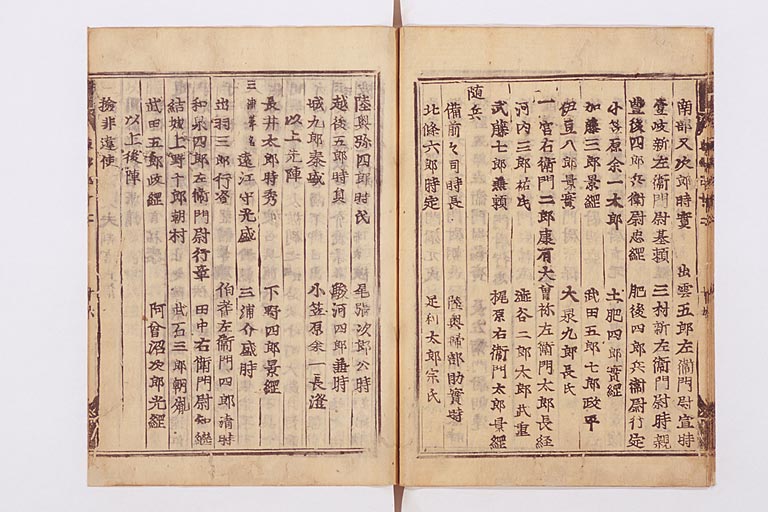 南部又次郎時實 出雲五郎左衛門尉宣時
壹岐新左衛門尉基頼 三村新左衛門尉時親
豊後四郎左衛門尉忠經 肥後四郎兵衛尉行定
小笠原余一太郎 土肥四郎實經
加藤三郎景經 武田五郎七郎政平
伊豆八郎景實 大泉九郎長氏
一宮右衛門二郎康有 大曾祢左衛門太郎長經
河内三郎祐氏 澁谷二郎太郎武重
武藤七郎兼頼 梶原右衛門太郎景經
随兵
備前々司時長 陸奥掃部助實時
北條六郎時定 足利太郎宗氏
陸奥弥四郎時茂 尾張次郎公時
越後五郎時員 駿河四郎兼時
城九郎泰盛 小笠原余一長澄
以上先陣
長井太郎時秀 下野四郎景經
三浦 遠江守光盛 三浦介盛時
出羽三郎行資 伯耆左衛門四郎清時
和泉四郎左衛門尉行章 田中右衛門尉知継
結城上野十郎朝村 武石三郎朝胤
武田五郎政經 阿曾沼次郎光經
以上後陣
撿非違使